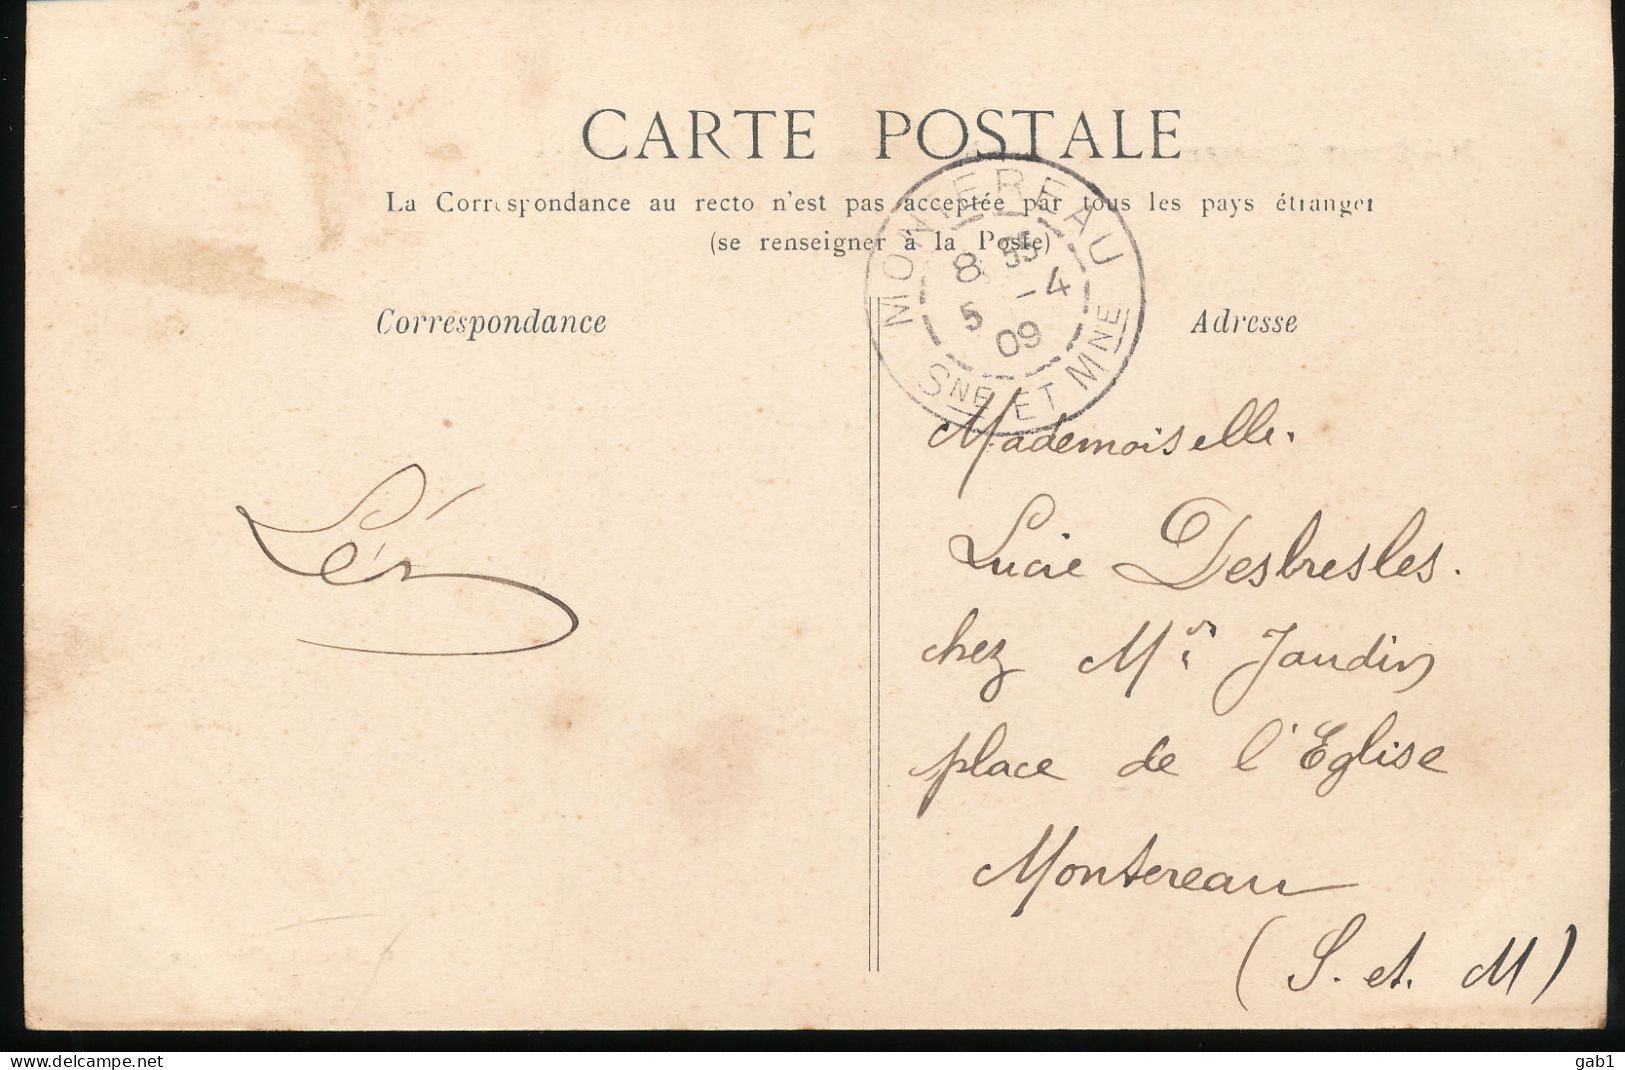 CARTE POSTALE
La Correspondance au recto n'est pas acceptée par tous les pays étranger
(se renseigner à la Poste)
MONTEREAU
8 35
5 -4
09
SNE ET MNE
Correspondance
Adresse
Mademoiselle.
Lucie Desbresles.
chez Mr Jaudin
place de l'Eglise
Montereau
(S. et. M)
delcampe.net
gab1